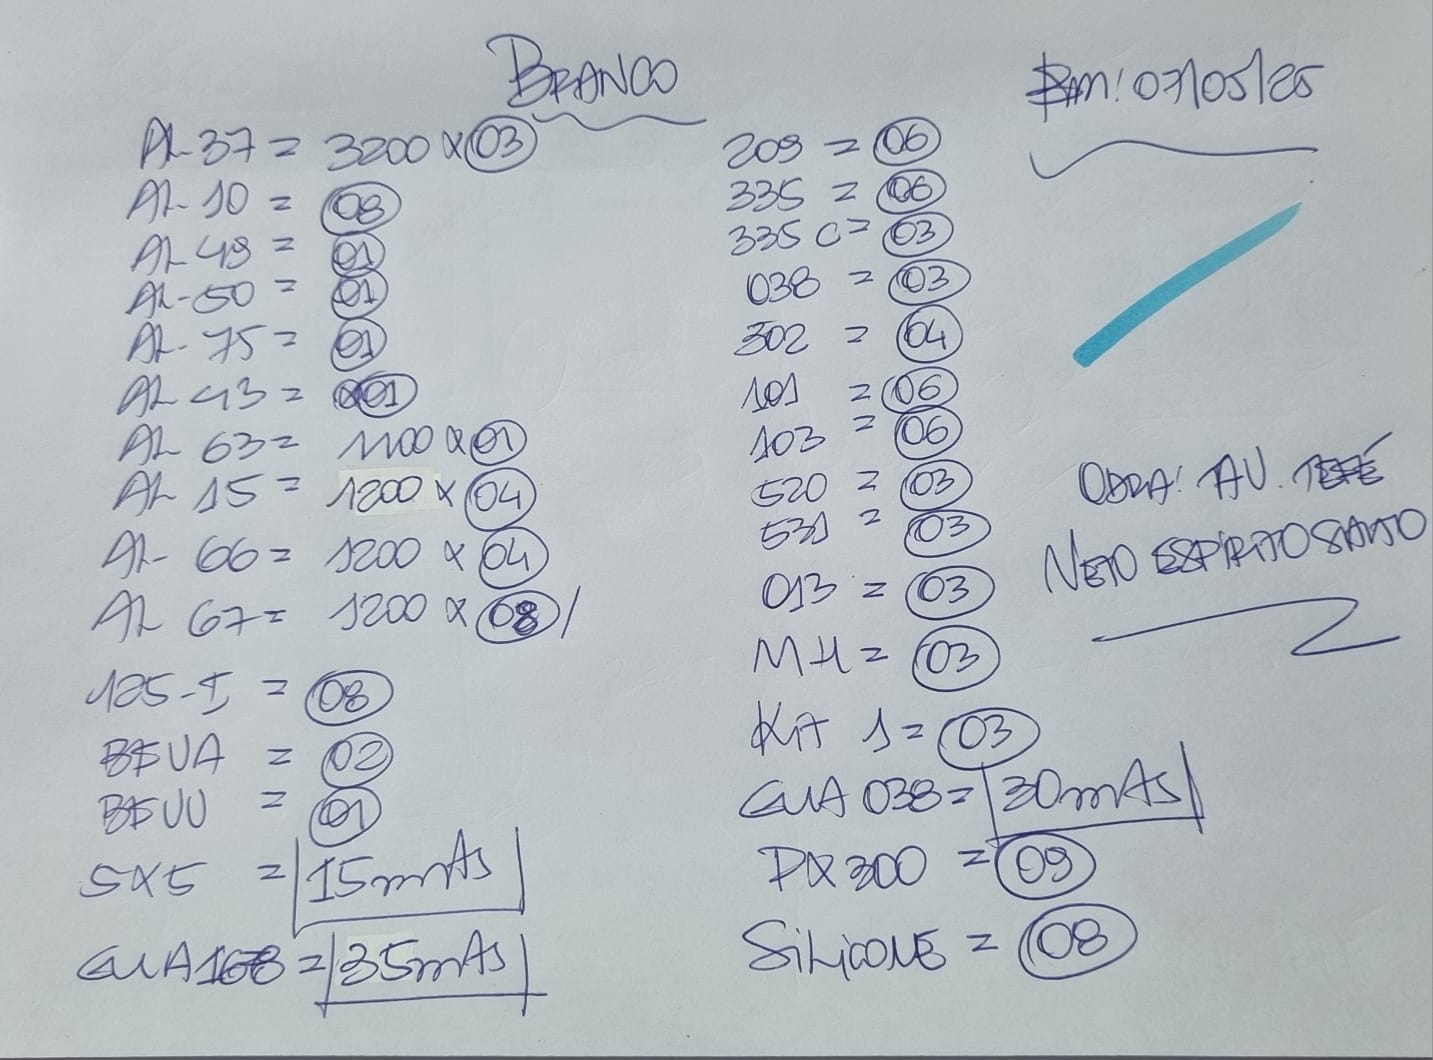 BRANCO
AL 37 = 3200 x 03
AL-10 = 08
AL 48 = 01
AL-50 = 01
AL-75 = 01
AL 43 = 01
AL 63 = 1100 x 01
AL 15 = 1200 x 04
AL-66 = 1200 x 04
AL 67 = 1200 x 08 /
125-I = 08
BFVA = 02
BFVU = 01
5x5 = 15mts
GUA168 = 35mts
209 = 06
335 = 06
335 C = 03
038 = 03
302 = 04
101 = 06
103 = 06
520 = 03
531 = 03
013 = 03
MH = 03
Kit 1 = 03
GUA 038 = 30mts
PX300 = 09
SiLiCONE = 08
07/05/25
OBRA: AV. TEFÉ
NETO ESPIRITO SANTO